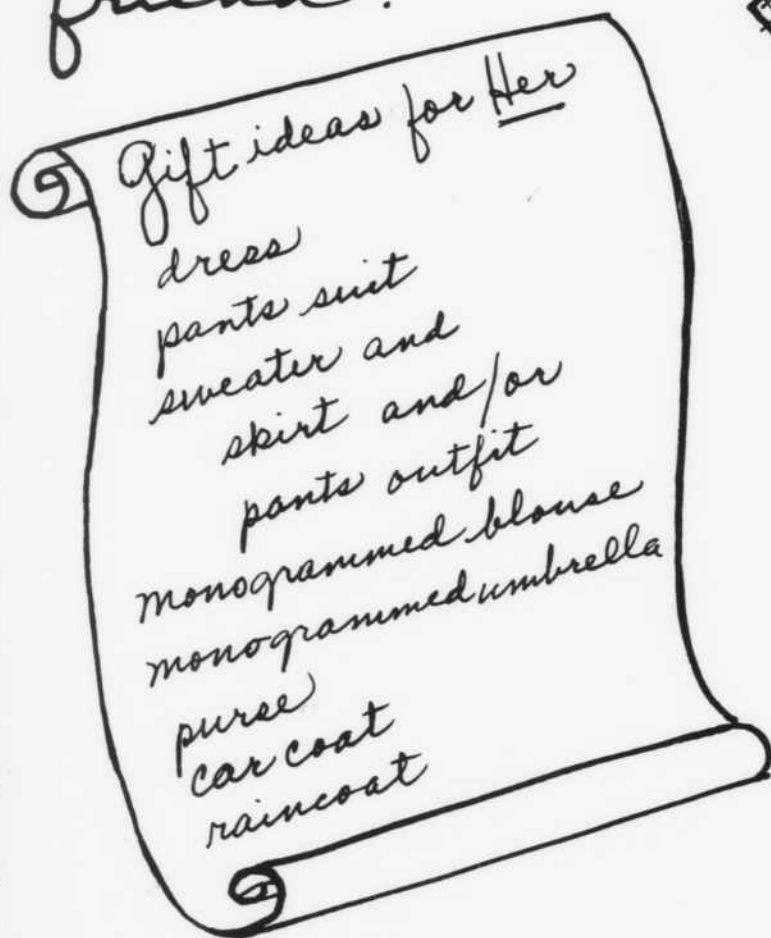 friend.
Gift ideas for Her
dress
pants suit
sweater and
skirt and/or
pants outfit
monogrammed blouse
monogrammed umbrella
purse
car coat
raincoat